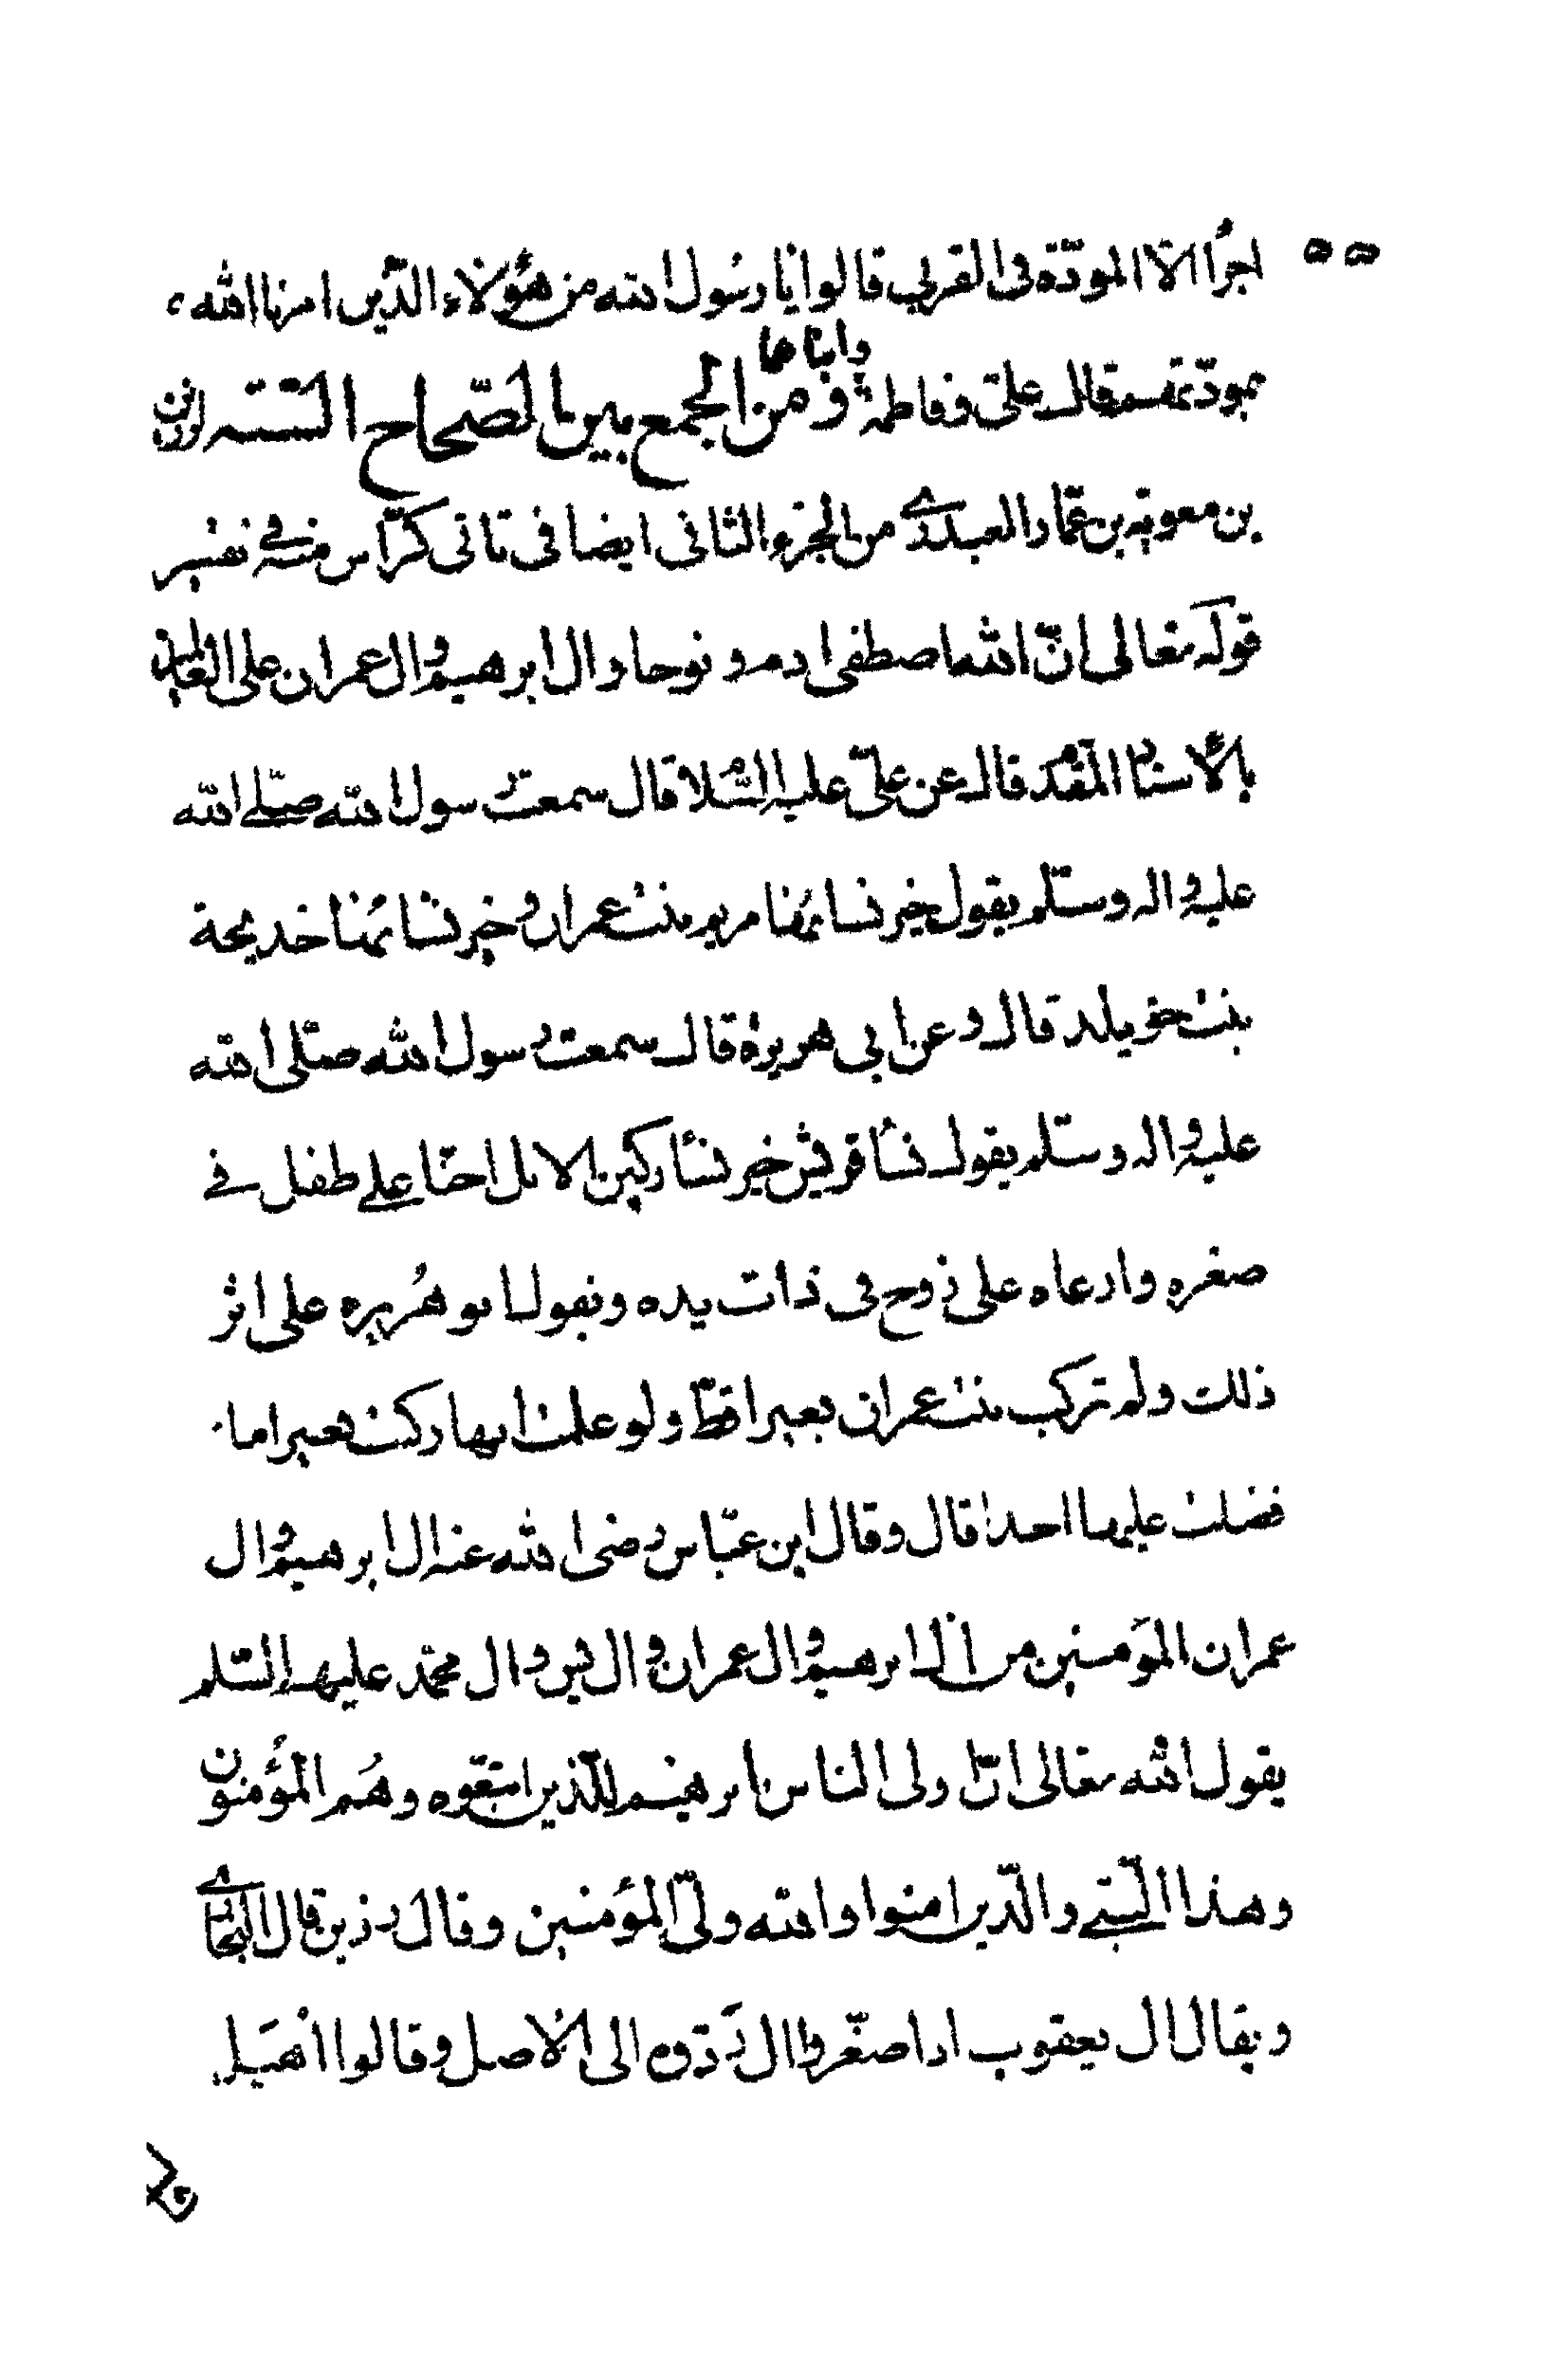 ٥٥
اجرًا الا المودّة فى القربى قالوا يا رسول الله من هؤلاء الّذين امرنا الله
بمودّتهم قال علىّ وفاطمة وابناهما ومن الجمع بين الصّحاح الستّة لرزين
بن معوية بن عمّار العبدرى من الجزء الثانى ايضا فى ثانى كرّاس منه فى تفسير
قوله تعالى انّ الله اصطفى ادم ونوحا وال ابرهيم وال عمران على العالمين
بالأسناد المقدّم قال عن علىّ عليه السّلام قال سمعت رسول الله صلّى الله
عليه واله وسلّم يقول خير نسائها مريم بنت عمران وخير نسائها خديجة
بنت خويلد قال وعن ابى هريرة قال سمعت رسول الله صلّى الله
عليه واله وسلّم يقول نساء قريش خير نساء ركبن الابل احنا على طفل فى
صغره وادعاه على زوج فى ذات يده ويقول ابو هُريره على اثر
ذلك ولم تركب بنت عمران بعيرا قطّ ولو علمت انها ركبت بعيرا ما
فضلت عليها احدا قال وقال ابن عبّاس رضى الله عنه ال ابرهيم وال
عمران المؤمنين من ال ابرهيم وال عمران وال يس وال محمّد عليهم السّلم
يقول الله تعالى انّ اولى الناس بابرهيم للّذين اتبعوه وهُم المؤمنون
وهذا النّبى والّذين امنوا والله ولىّ المؤمنين وقال رزين قال البخارى
ويقال ال يعقوب اذا صغّروا ال ردّوه الى الأصل وقالوا أهَيل